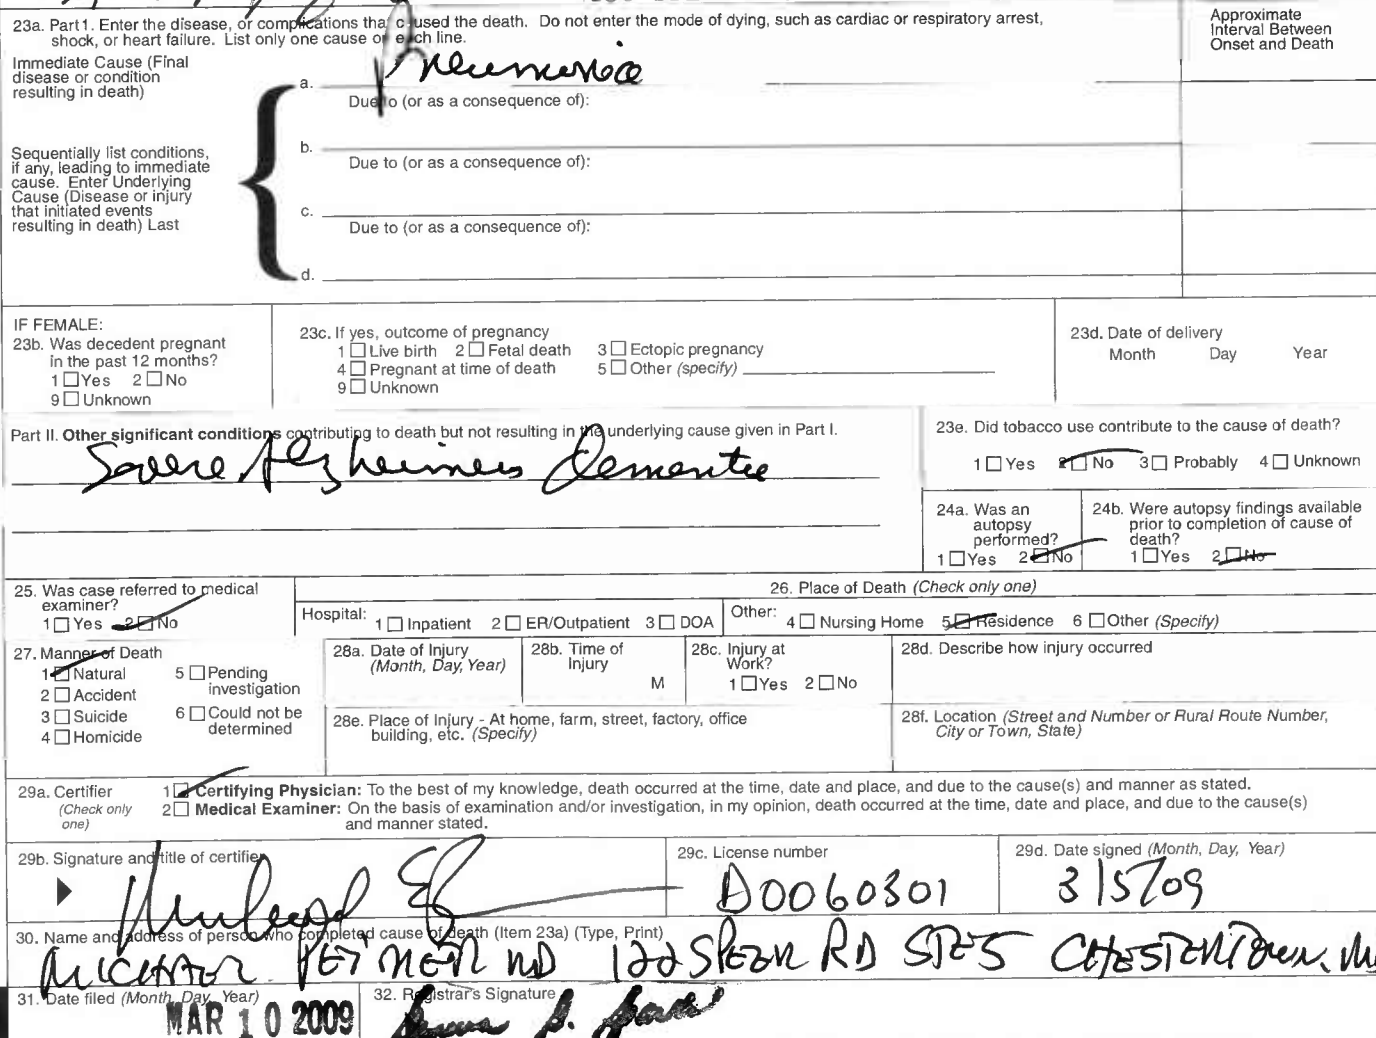 23a. Part1. Enter the disease, or complications that caused the death. Do not enter the mode of dying, such as cardiac or respiratory arrest,
shock, or heart failure. List only one cause on each line.
Approximate
Interval Between
Onset and Death
Immediate Cause (Final
disease or condition
resulting in death)
a. Pneumonia
Due to (or as a consequence of):
Sequentially list conditions,
if any, leading to immediate
cause. Enter Underlying
Cause (Disease or injury
that initiated events
resulting in death) Last
b.
Due to (or as a consequence of):
c.
Due to (or as a consequence of):
d.
IF FEMALE:
23b. Was decedent pregnant
in the past 12 months?
1 □ Yes 2 □ No
9 □ Unknown
23c. If yes, outcome of pregnancy
1 □ Live birth 2 □ Fetal death 3 □ Ectopic pregnancy
4 □ Pregnant at time of death 5 □ Other (specify)
9 □ Unknown
23d. Date of delivery
Month Day Year
Part II. Other significant conditions contributing to death but not resulting in the underlying cause given in Part I.
Severe Alzheimers Dementia
23e. Did tobacco use contribute to the cause of death?
1 □ Yes 2 □ No 3 □ Probably 4 □ Unknown
24a. Was an
autopsy
performed?
1 □ Yes 2 □ No
24b. Were autopsy findings available
prior to completion of cause of
death?
1 □ Yes 2 □ No
25. Was case referred to medical
examiner?
1 □ Yes 2 □ No
26. Place of Death (Check only one)
Hospital: 1 □ Inpatient 2 □ ER/Outpatient 3 □ DOA
Other: 4 □ Nursing Home 5 □ Residence 6 □ Other (Specify)
27. Manner of Death
1 □ Natural
2 □ Accident
3 □ Suicide
4 □ Homicide
5 □ Pending
investigation
6 □ Could not be
determined
28a. Date of Injury
(Month, Day, Year)
28b. Time of
Injury
M
28c. Injury at
Work?
1 □ Yes 2 □ No
28d. Describe how injury occurred
28e. Place of Injury - At home, farm, street, factory, office
building, etc. (Specify)
28f. Location (Street and Number or Rural Route Number,
City or Town, State)
29a. Certifier
(Check only
one)
1 □ Certifying Physician: To the best of my knowledge, death occurred at the time, date and place, and due to the cause(s) and manner as stated.
2 □ Medical Examiner: On the basis of examination and/or investigation, in my opinion, death occurred at the time, date and place, and due to the cause(s)
and manner stated.
29b. Signature and title of certifier
29c. License number
D0060301
29d. Date signed (Month, Day, Year)
3/5/09
30. Name and address of person who completed cause of death (Item 23a) (Type, Print)
MICHAEL PEIMER MD 122 SPEER RD STE5 CHESTERTOWN, M
31. Date filed (Month, Day, Year)
MAR 10 2009
32. Registrar's Signature